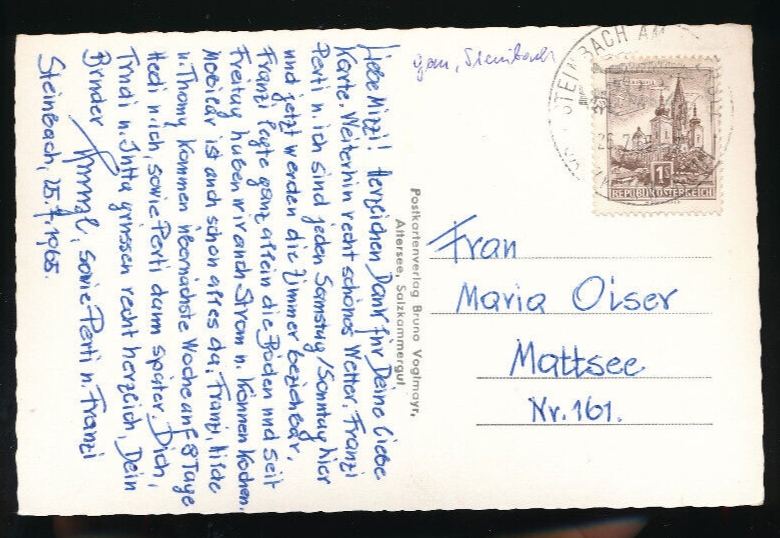 Liebe Mizzi! Herzlichen Dank für Deine liebe
Karte. Weiterhin recht schönes Wetter. Franzi
Perti u. ich sind jeden Samstag/Sonntag hier
und jetzt werden die Zimmer beziehbar.
Franzi legte ganz allein die Böden und seit
Freitag haben wir auch Strom u. können kochen.
Mobilar ist auch schon alles da. Franzi, Hilde
u. Thomy kommen übernächste Woche auf 8 Tage
Hedi u. ich, sowie Perti dann später. Dich,
Trudi u. Jutta grüssen recht herzlich, Dein
Bruder, sowie Perti u. Franzi
Steinbach, 25.7.1965.
Postkartenverlag Bruno Voglmayr,
Attersee, Salzkammergut
Steinbach
STEINBACH AM
REPUBLIK ÖSTERREICH
1S
Frau
Maria Oiser
Mattsee
Nr. 161.